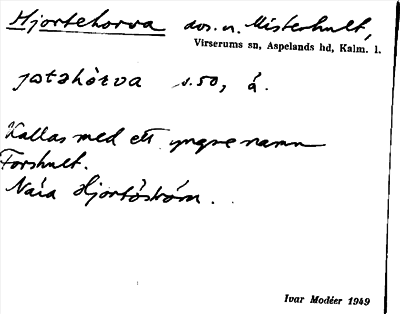 Hjortehorva avs. u. Misterhult,
Virserums sn, Aspelands hd, Kalm. l.
jotahòrva s. 50, á.
Kallas med ett yngre namn
Forshult.
Nära Hjortöström.
Ivar Modéer 1949